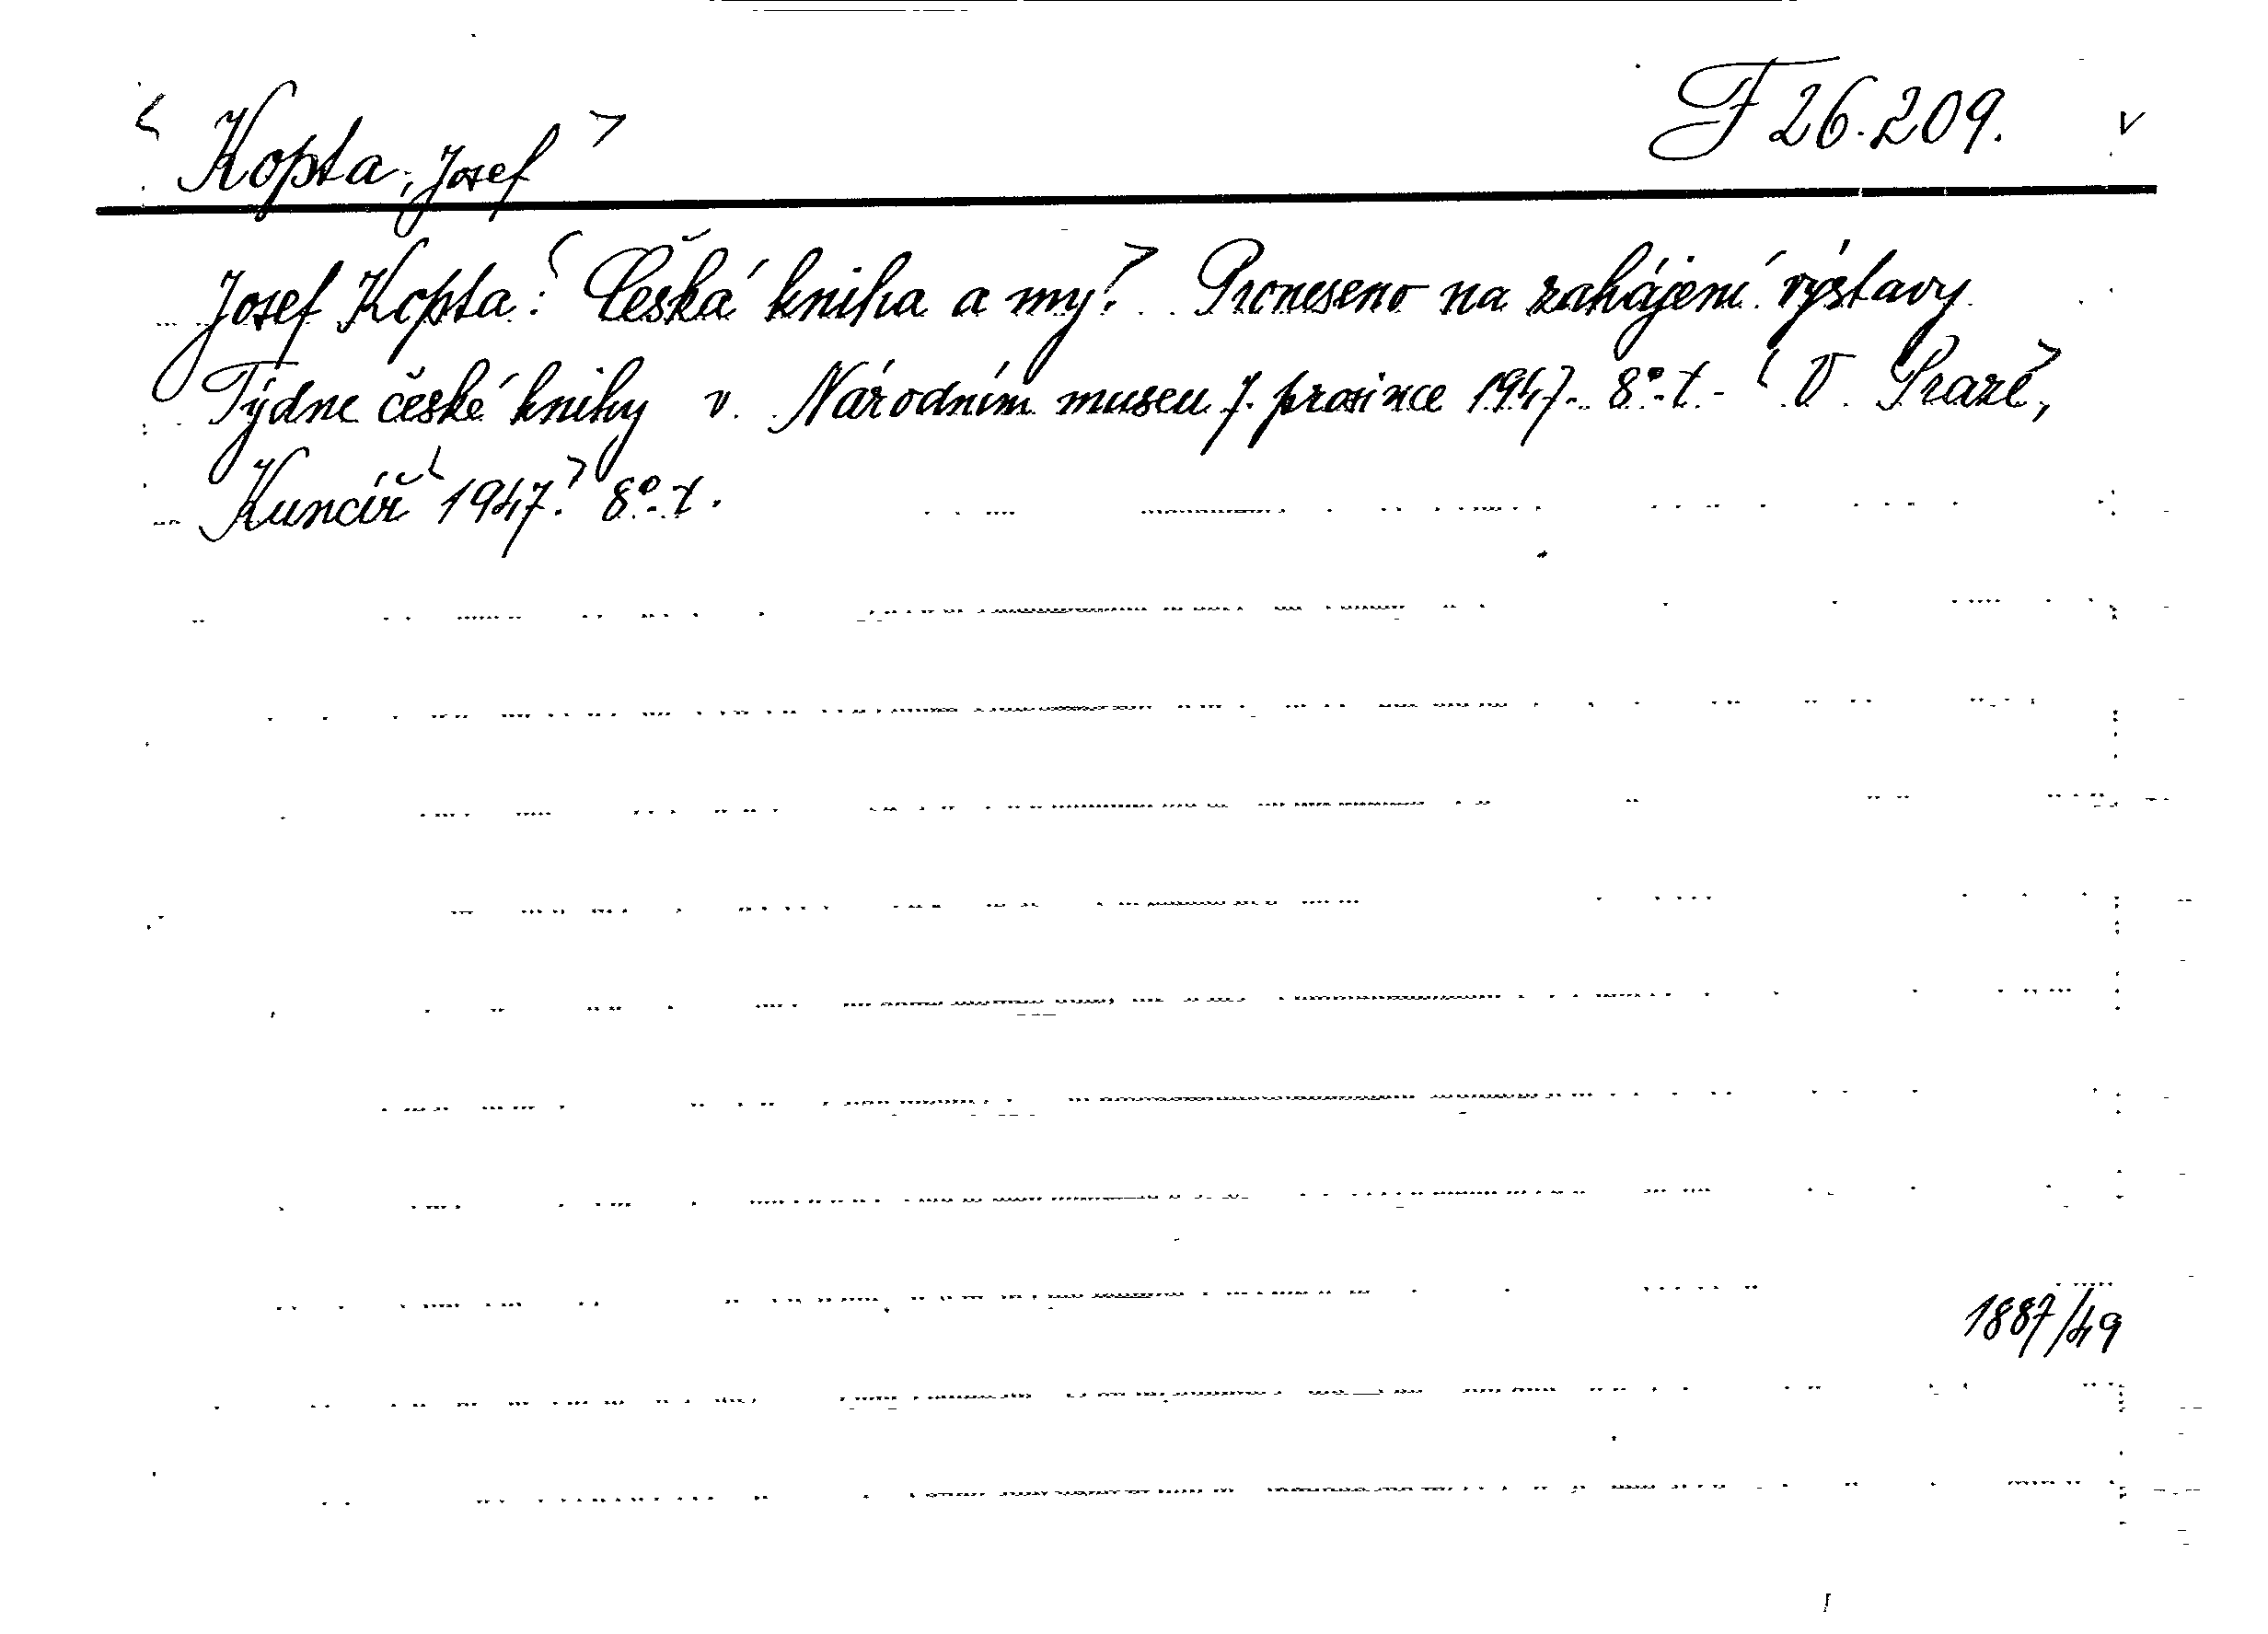 < Kopta, Josef > F 26.209. v
Josef Kopta: < Česká kniha a my. > Proneseno na zahájení výstavy
Týdne české knihy v Národním museu 7. prosince 1947.- 8°-t.- < V Praze, >
Kuncíř < 1947. > 8°-t.
1887/49